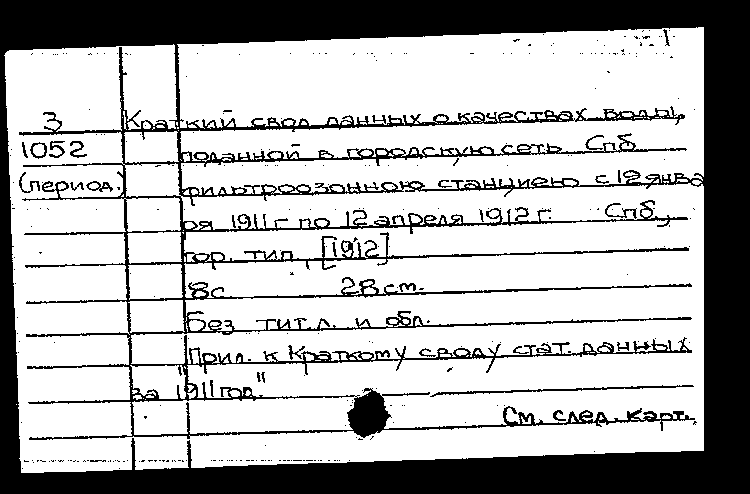 3 Краткий свод данных о качествах воды,
1052 поданной в городскую сеть Спб
(период.) фильтроозонною станциею с 12 янва
ря 1911 г по 12 апреля 1912 г. Спб.,
гор. тип., [1912].
8с 28 см.
Без тит. л. и обл.
"Прил. к Краткому своду стат. данных
за 1911 год."
См. след. карт.